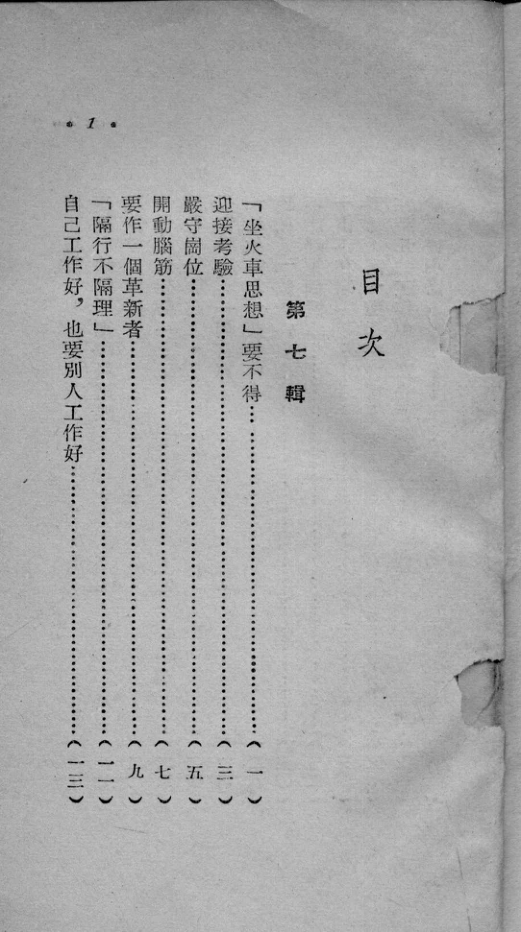 目次
第七輯
「坐火車思想」要不得……………………(一)
迎接考驗……………………(三)
嚴守崗位……………………(五)
開動腦筋……………………(七)
要作一個革新者……………………(九)
「隔行不隔理」……………………(一一)
自己工作好，也要別人工作好……………………(一三)
• 1 •